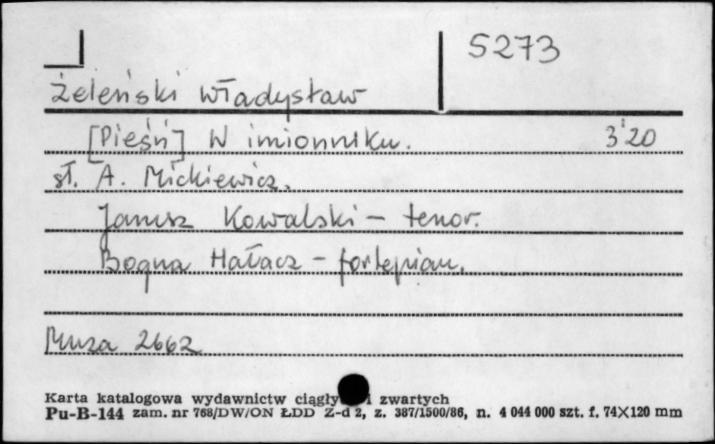 5273
Żeleński Władysław
[Pieśń] W imionniku. 3'20
sł. A. Mickiewicz.
Janusz Kowalski – tenor.
Bogna Hałacz – fortepian.
Muza 2662
Karta katalogowa wydawnictw ciągły i zwartych
Pu-B-144 zam. nr 768/DW/ON ŁDD Z-d 2, z. 387/1500/86, n. 4 044 000 szt. f. 74×120 mm